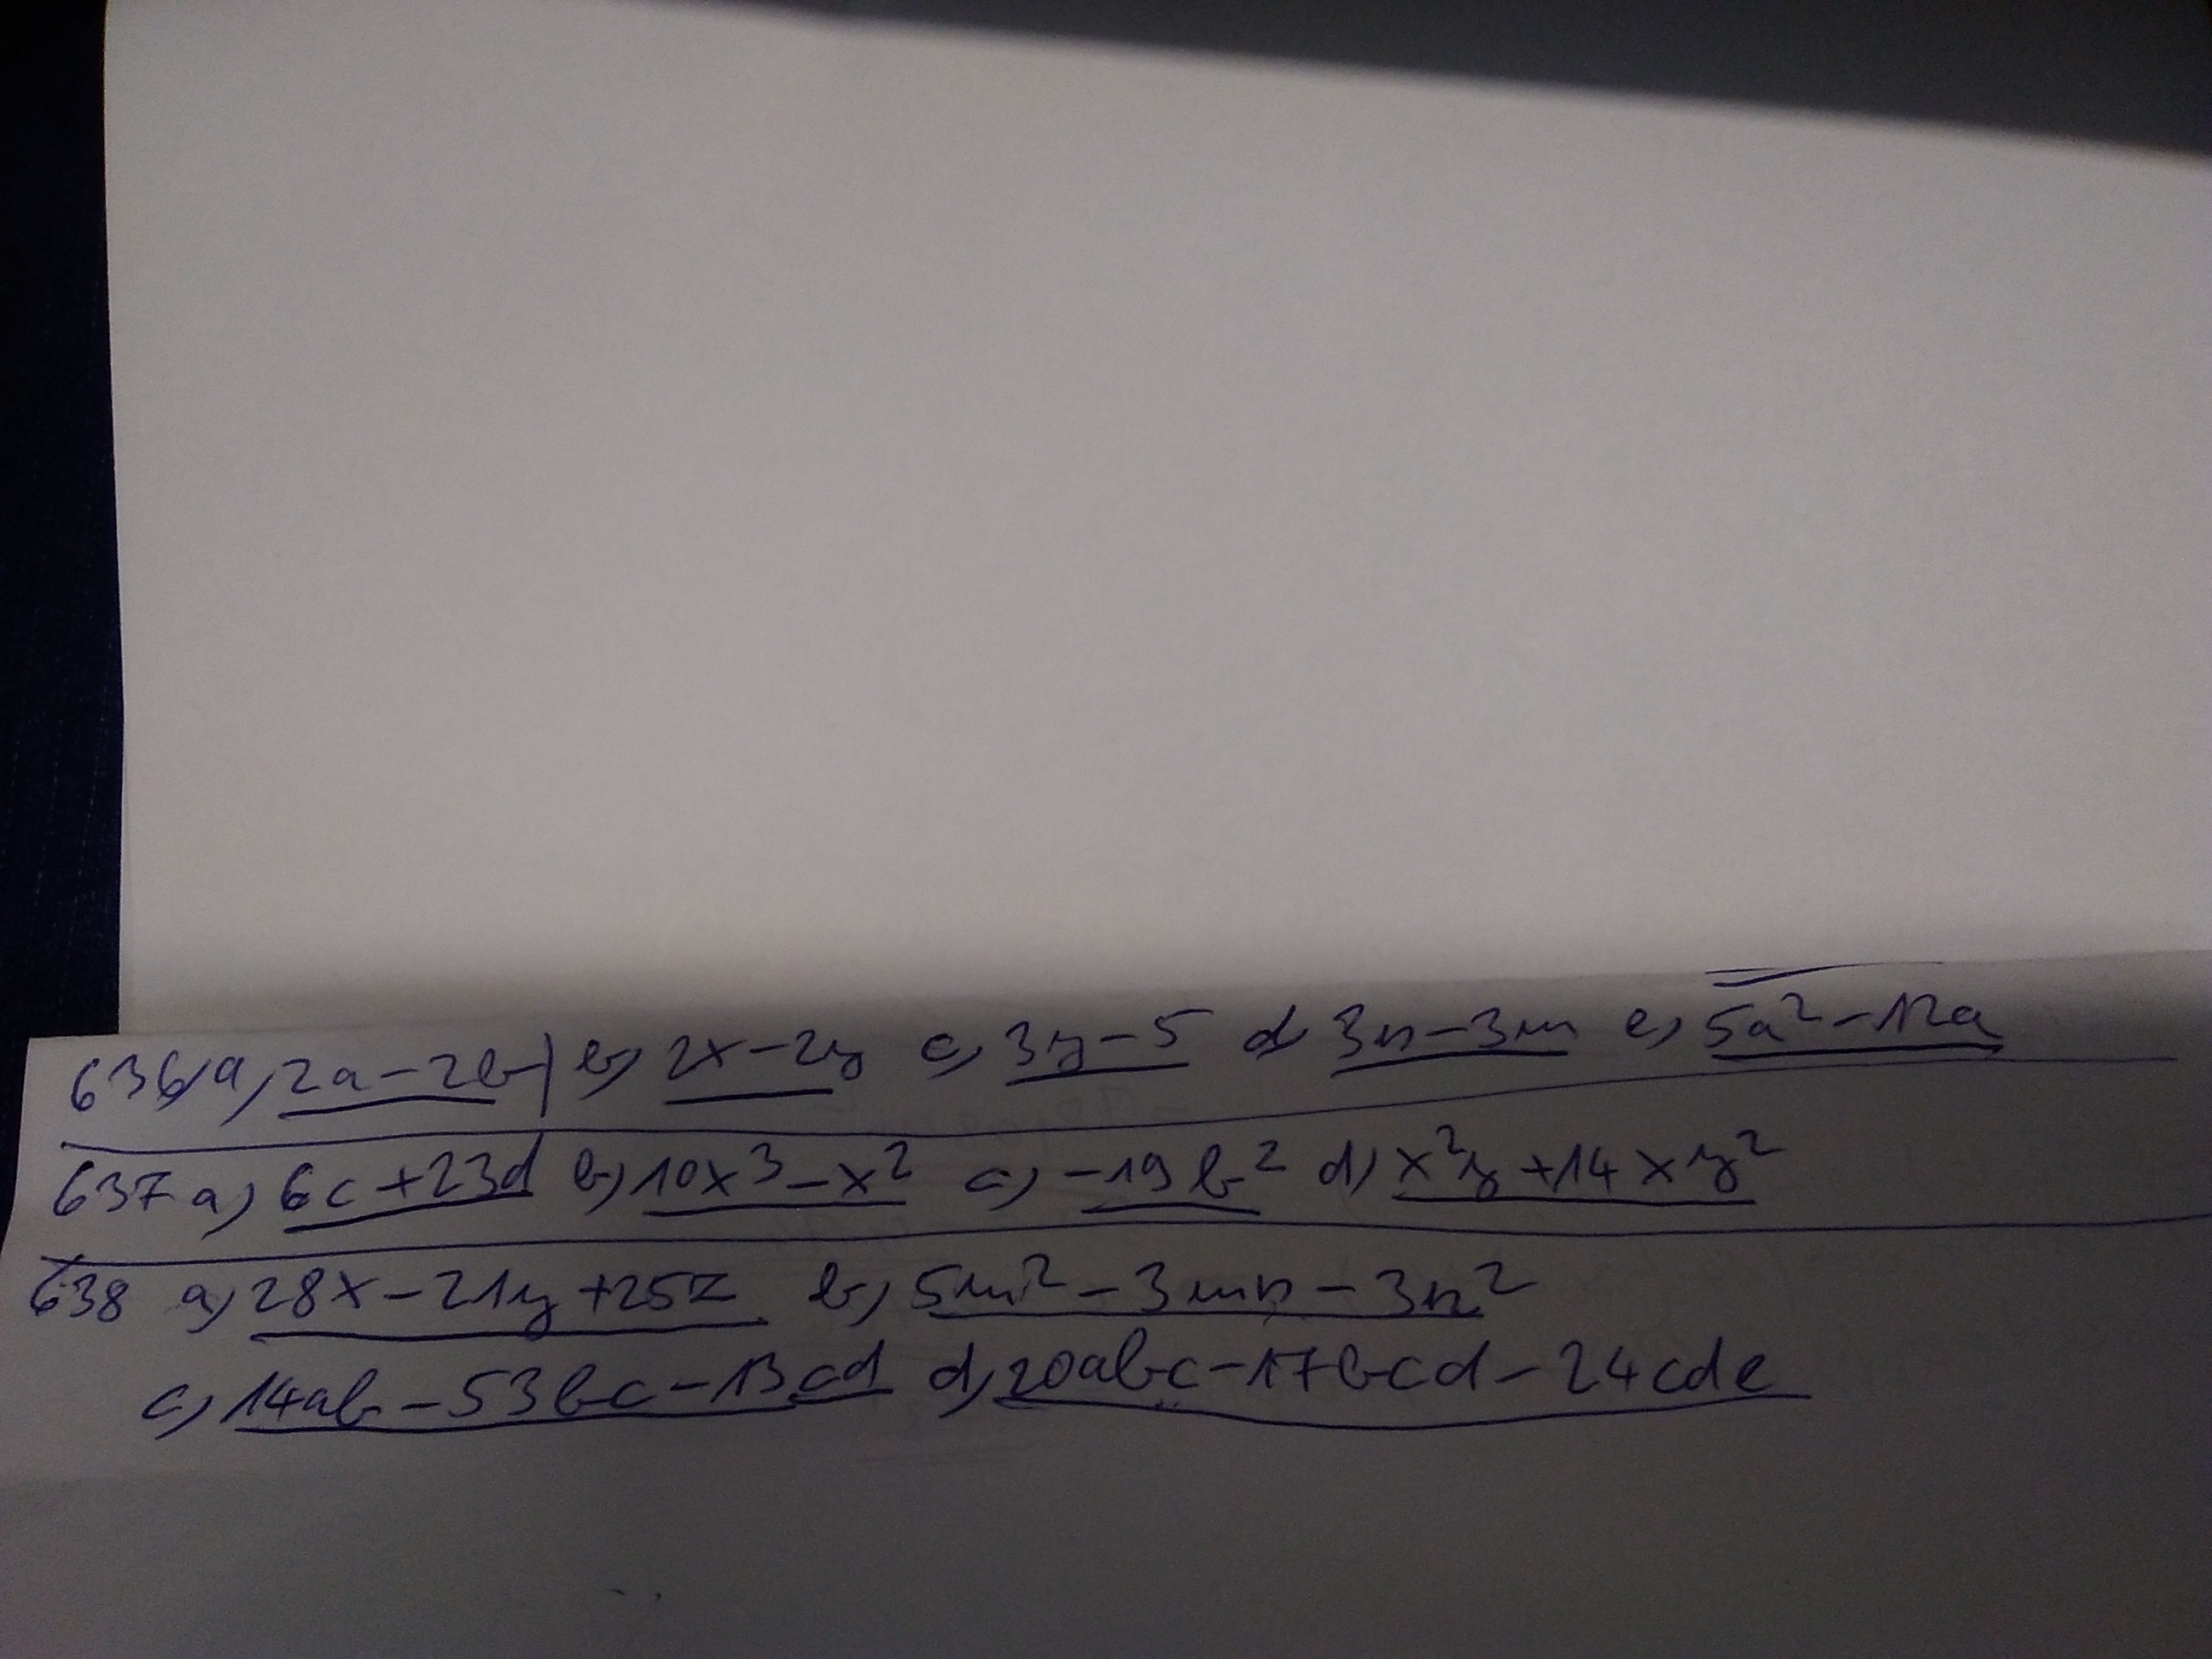 636, a, 2a-2b | b, 2x-2y c, 3y-5 d 3n-3m e, 5a²-12a
637 a, 6c+23d b, 10x³-x² c, -19b² d, x²y+14xy²
638 a, 28x-21y+25z b, 5m²-3mn-3n²
c, 14ab-53bc-13cd d, 20abc-17bcd-24cde